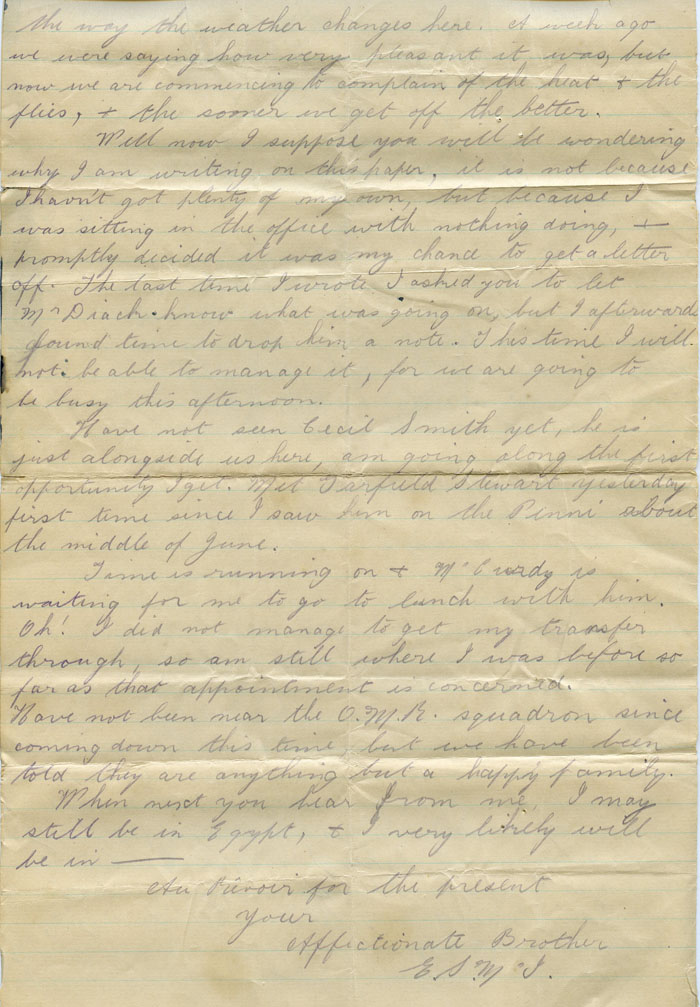 the way the weather changes here. A week ago
we were saying how very pleasant it was, but
now we are commencing to complain of the heat & the
flies, & the sooner we get off the better.
Well now I suppose you will be wondering
why I am writing on this paper, it is not because
I havn't got plenty of my own, but because I
was sitting in the office with nothing doing, &
promptly decided it was my chance to get a letter
off. The last time I wrote I asked you to let
Mc Diach know what was going on, but I afterward
found time to drop him a note. This time I will
not be able to manage it, for we are going to
be busy this afternoon.
Have not seen Cecil Smith yet, he is
just alongside us here, am going along the first
opportunity I get. Met Fairfield Stewart yesterday
first time since I saw him on the Penni about
the middle of June.
Time is running on & McCurdy is
waiting for me to go to lunch with him.
Oh! I did not manage to get my transfer
through, so am still where I was before so
far as that appointment is concerned.
Have not been near the O.M.R. squadron since
coming down this time, but we have been
told they are anything but a happy family.
When next you hear from me, I may
still be in Egypt, & I very likely will
be in —
Au Revoir for the present
Your
Affectionate Brother
E S McI.